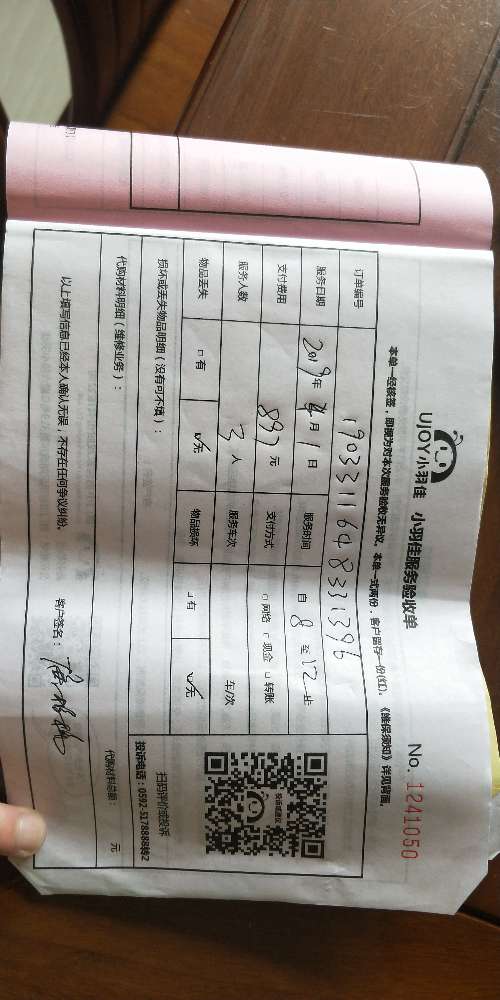 UJOY小羽佳 小羽佳服务验收单 No. 1241050
本单一经核签，即视为对本次服务验收无异议，本单一式两份，客户留存一份(红)。《维保须知》详见背面。
订单编号 1903311648331396
服务日期 2019年4月1日 服务时间 自8至12止
支付费用 897元 支付方式 □网络 □现金 □转账
服务人数 3人 服务车次 车/次
物品丢失 □有 ☑无 物品损坏 □有 ☑无
扫码评价或投诉
投诉电话：0592-5178888转2
损坏或丢失物品明细（没有可不填）：
代购材料明细（维修业务）： 代购材料总额： 元
以上填写信息已经本人确认无误，不存在任何争议纠纷。 客户签名：